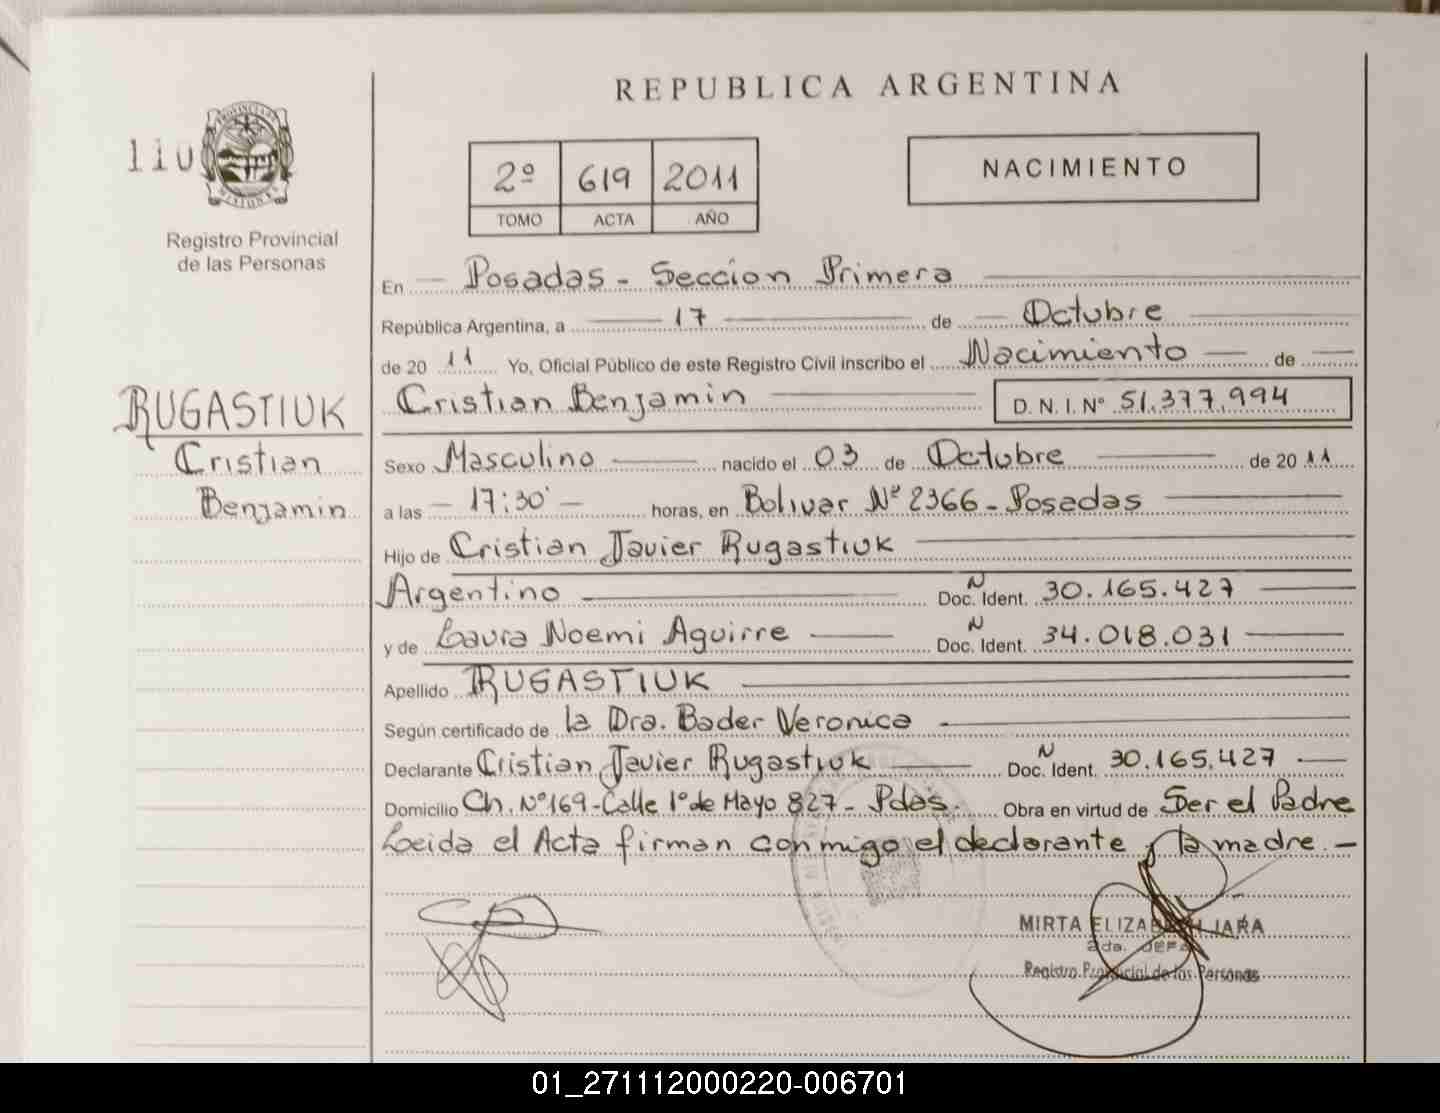 REPUBLICA ARGENTINA
110
2º 619 2011
TOMO ACTA AÑO
NACIMIENTO
Registro Provincial
de las Personas
RUGASTIUK
Cristian
Benjamin
En Posadas - Seccion Primera
República Argentina, a 17 de Octubre
de 20 11 Yo, Oficial Público de este Registro Civil inscribo el Nacimiento de
Cristian Benjamin D. N. I. Nº 51.377.994
Sexo Masculino nacido el 03 de Octubre de 20 11
a las 17:30 horas, en Bolivar Nº 2366 - Posadas
Hijo de Cristian Javier Rugastiuk
Argentino Doc. Ident. N 30.165.427
y de Laura Noemi Aguirre Doc. Ident. N 34.018.031
Apellido RUGASTIUK
Según certificado de la Dra. Bader Veronica
Declarante Cristian Javier Rugastiuk Doc. Ident. N 30.165.427
Domicilio Ch. Nº 169 - Calle 1º de Mayo 827 - Pdas. Obra en virtud de Ser el Padre
Leida el Acta firman conmigo el declarante y la madre. -
MIRTA
2da. JEFA
Registro Provincial de las Personas
01_271112000220-006701